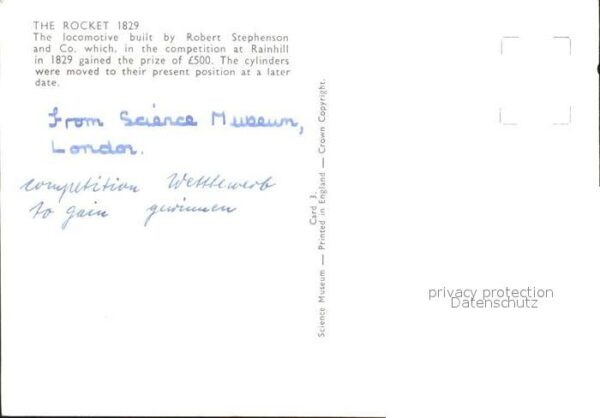 THE ROCKET 1829
The locomotive built by Robert Stephenson
and Co. which, in the competition at Rainhill
in 1829 gained the prize of £500. The cylinders
were moved to their present position at a later
date.
From Science Museum,
London.
competition Wettbewerb
to gain gewinnen
Card 3
Science Museum — Printed in England — Crown Copyright.
privacy protection
Datenschutz